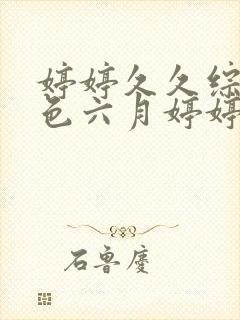 婷婷久久综
色六月婷婷
石鲁慶